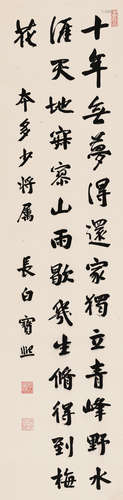 十年無夢得還家獨立青峰野水
涯天地寂寥山雨歇幾生脩得到梅
花
本多少将属
長白寶熙